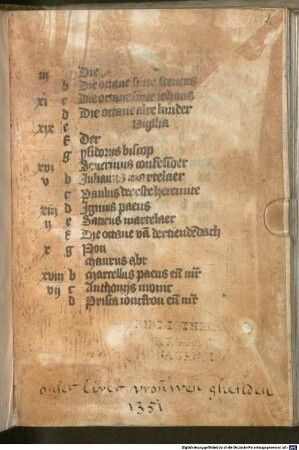 iii Die
b Die octaue sinte steuens
xi c Die octaue sinte iohans
d Die octaue alre kinder
xix e Vigilia
f Der
g ysidorus biscop
xvi Seuerinus confessoer
v b Julianus martelaer
c Paulus deerste heremite
xiii d Iginius paeus
ii e Satirus martelaer
f Die octaue van dertiendedach
x g Pon
Maurus abt
xviii b Marcellus paeus en mr
vij c Anthonijs monic
d Prisca ioncfrou en mr
BIBLIOTHECA
REGIA
MONACENSIS
onser liever vrouwen ghetiden
1351